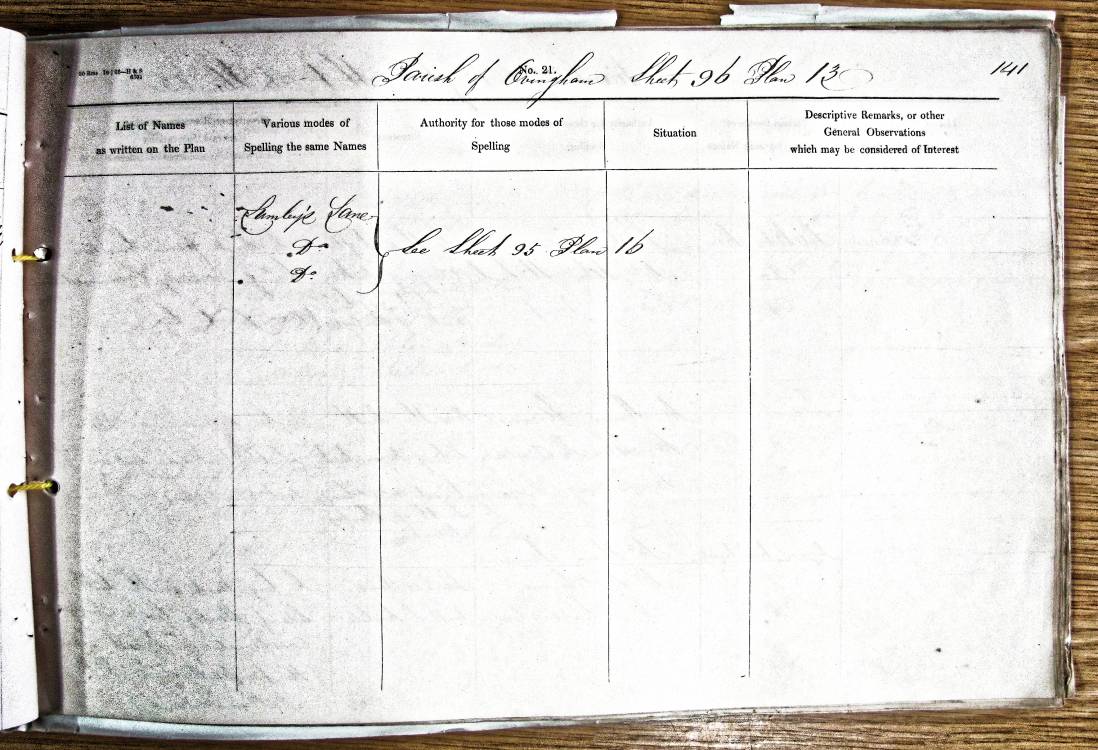 No. 21.
Parish of Ovingham Sheet 96 Plan 13
141
List of Names
as written on the Plan
Various modes of
Spelling the same Names
Authority for those modes of
Spelling
Situation
Descriptive Remarks, or other
General Observations
which may be considered of Interest
Lane
Do
Do
See Sheet 95 Plan 16